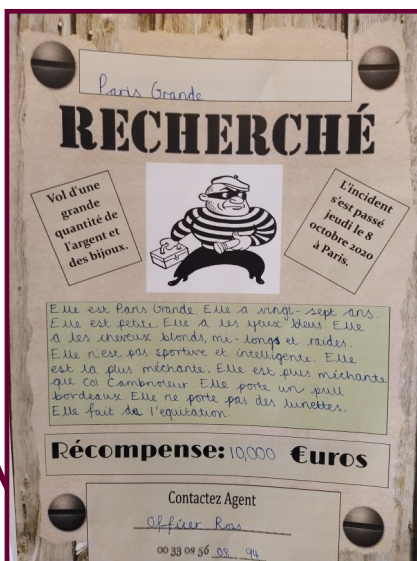 Paris Grande
RECHERCHÉ
Vol d'une
grande
quantité de
l'argent et
des bijoux.
L'incident
s'est passé
jeudi le 8
octobre 2020
à Paris.
Elle est Paris Grande. Elle a vingt-sept ans.
Elle est petite. Elle a les yeux bleus. Elle
a les cheveux blonds, mi-longs et raides.
Elle n'est pas sportive et intelligente. Elle
est la plus méchante. Elle est plus méchante
que Col Cambrioleur. Elle porte un pull
bordeaux. Elle ne porte pas des lunettes.
Elle fait de l'equitation.
Récompense: 10,000 €uros
Contactez Agent
Officer Ross
00 33 09 56 08 94